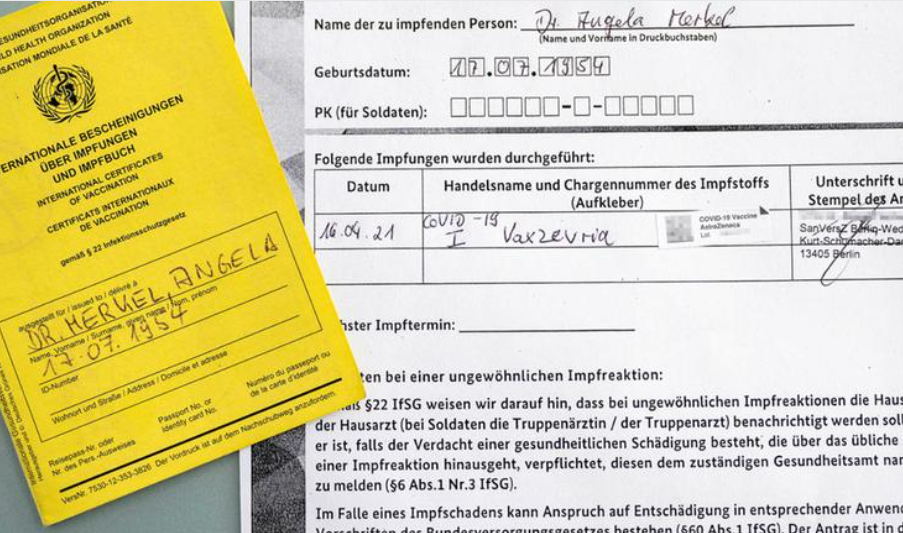 ESUNDHEITSORGANISATION
LD HEALTH ORGANIZATION
SATION MONDIALE DE LA SANTÉ
ERNATIONALE BESCHEINIGUNGEN
ÜBER IMPFUNGEN
UND IMPFBUCH
INTERNATIONAL CERTIFICATES
OF VACCINATION
CERTIFICATS INTERNATIONAUX
DE VACCINATION
gemäß § 22 Infektionsschutzgesetz
ausgestellt für / issued to / délivré à
DR. MERKEL, ANGELA
Name, Vorname / Surname, given name / Nom, prénom
17.07.1954
ID-Number
Wohnort und Straße / Address / Domicile et adresse
Reisepass-Nr. oder
Nr. des Pers.-Ausweises
Passport No. or
Identity card No.
Numéro du passeport ou
de la carte d'identité
VersNr. 7530-12-353-3826 Der Vordruck ist auf dem Nachschubweg anzufordern.
Name der zu impfenden Person: Dr. Angela Merkel
(Name und Vorname in Druckbuchstaben)
Geburtsdatum: 17.07.1954
PK (für Soldaten):
Folgende Impfungen wurden durchgeführt:
Datum
Handelsname und Chargennummer des Impfstoffs
(Aufkleber)
Unterschrift u
Stempel des Ar
16.04.21
COVID-19
I Vaxzevria
COVID-19 Vaccine
AstraZeneca
Lot
SanVersZ Berlin-Wed
Kurt-Schumacher-Dar
13405 Berlin
hster Impftermin:
ten bei einer ungewöhnlichen Impfreaktion:
äß §22 IfSG weisen wir darauf hin, dass bei ungewöhnlichen Impfreaktionen die Haus
der Hausarzt (bei Soldaten die Truppenärztin / der Truppenarzt) benachrichtigt werden soll
er ist, falls der Verdacht einer gesundheitlichen Schädigung besteht, die über das übliche
einer Impfreaktion hinausgeht, verpflichtet, diesen dem zuständigen Gesundheitsamt nam
zu melden (§6 Abs.1 Nr.3 IfSG).
Im Falle eines Impfschadens kann Anspruch auf Entschädigung in entsprechender Anwend
Vorschriften des Bundesversorgungsgesetzes bestehen (§60 Abs.1 IfSG). Der Antrag ist in d